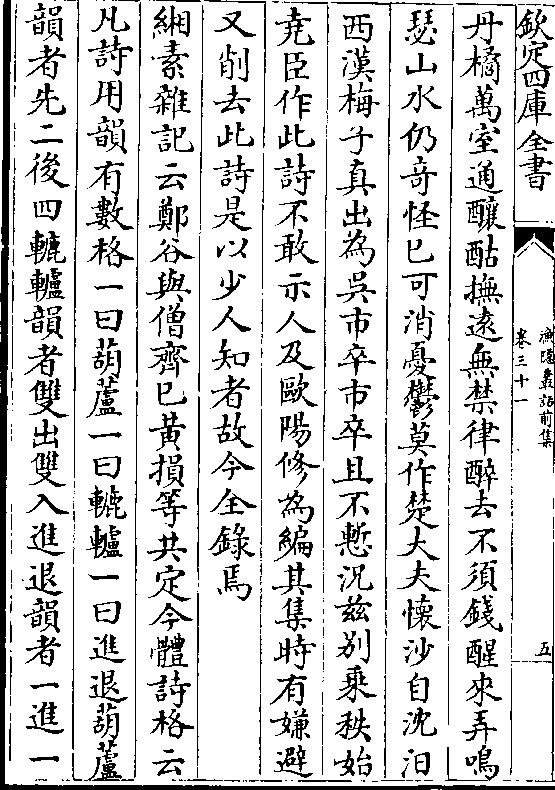 欽定四庫全書
漁隱叢話前集
卷三十一
五
丹橘萬室通釀酤撫遠無禁律醉去不須錢醒來弄鳴
瑟山水仍竒怪已可消憂鬱莫作楚大夫懷沙自沈汨
西漢梅子真出為吳市卒市卒且不慙況兹别乗秩始
堯臣作此詩不敢示人及歐陽修為編其集時有嫌避
又削去此詩是以少人知者故今全錄焉
緗素雜記云鄭谷與僧齊已黄損等共定今體詩格云
凡詩用韻有數格一曰葫蘆一曰轆轤一曰進退葫蘆
韻者先二後四轆轤韻者雙出雙入進退韻者一進一